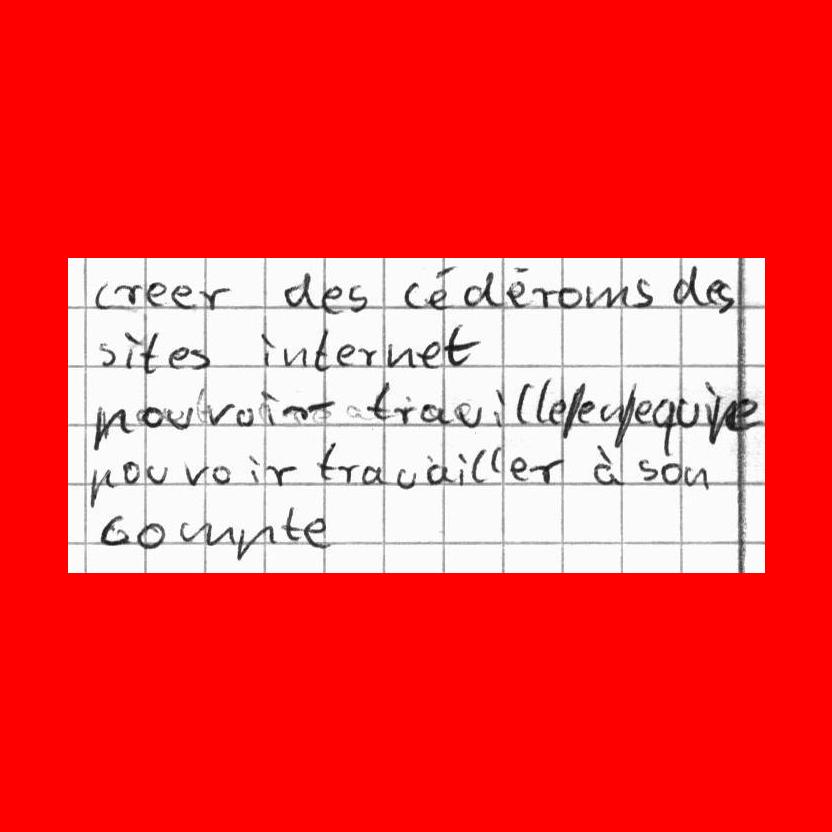 creer des cédéroms des
sites internet
pouvoir travailler en equipe
pouvoir travailler à son
compte